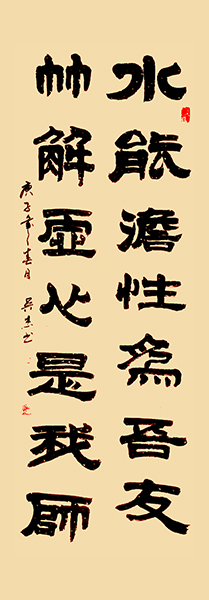 水能澹性為吾友
竹解虛心是我師
庚子年春月